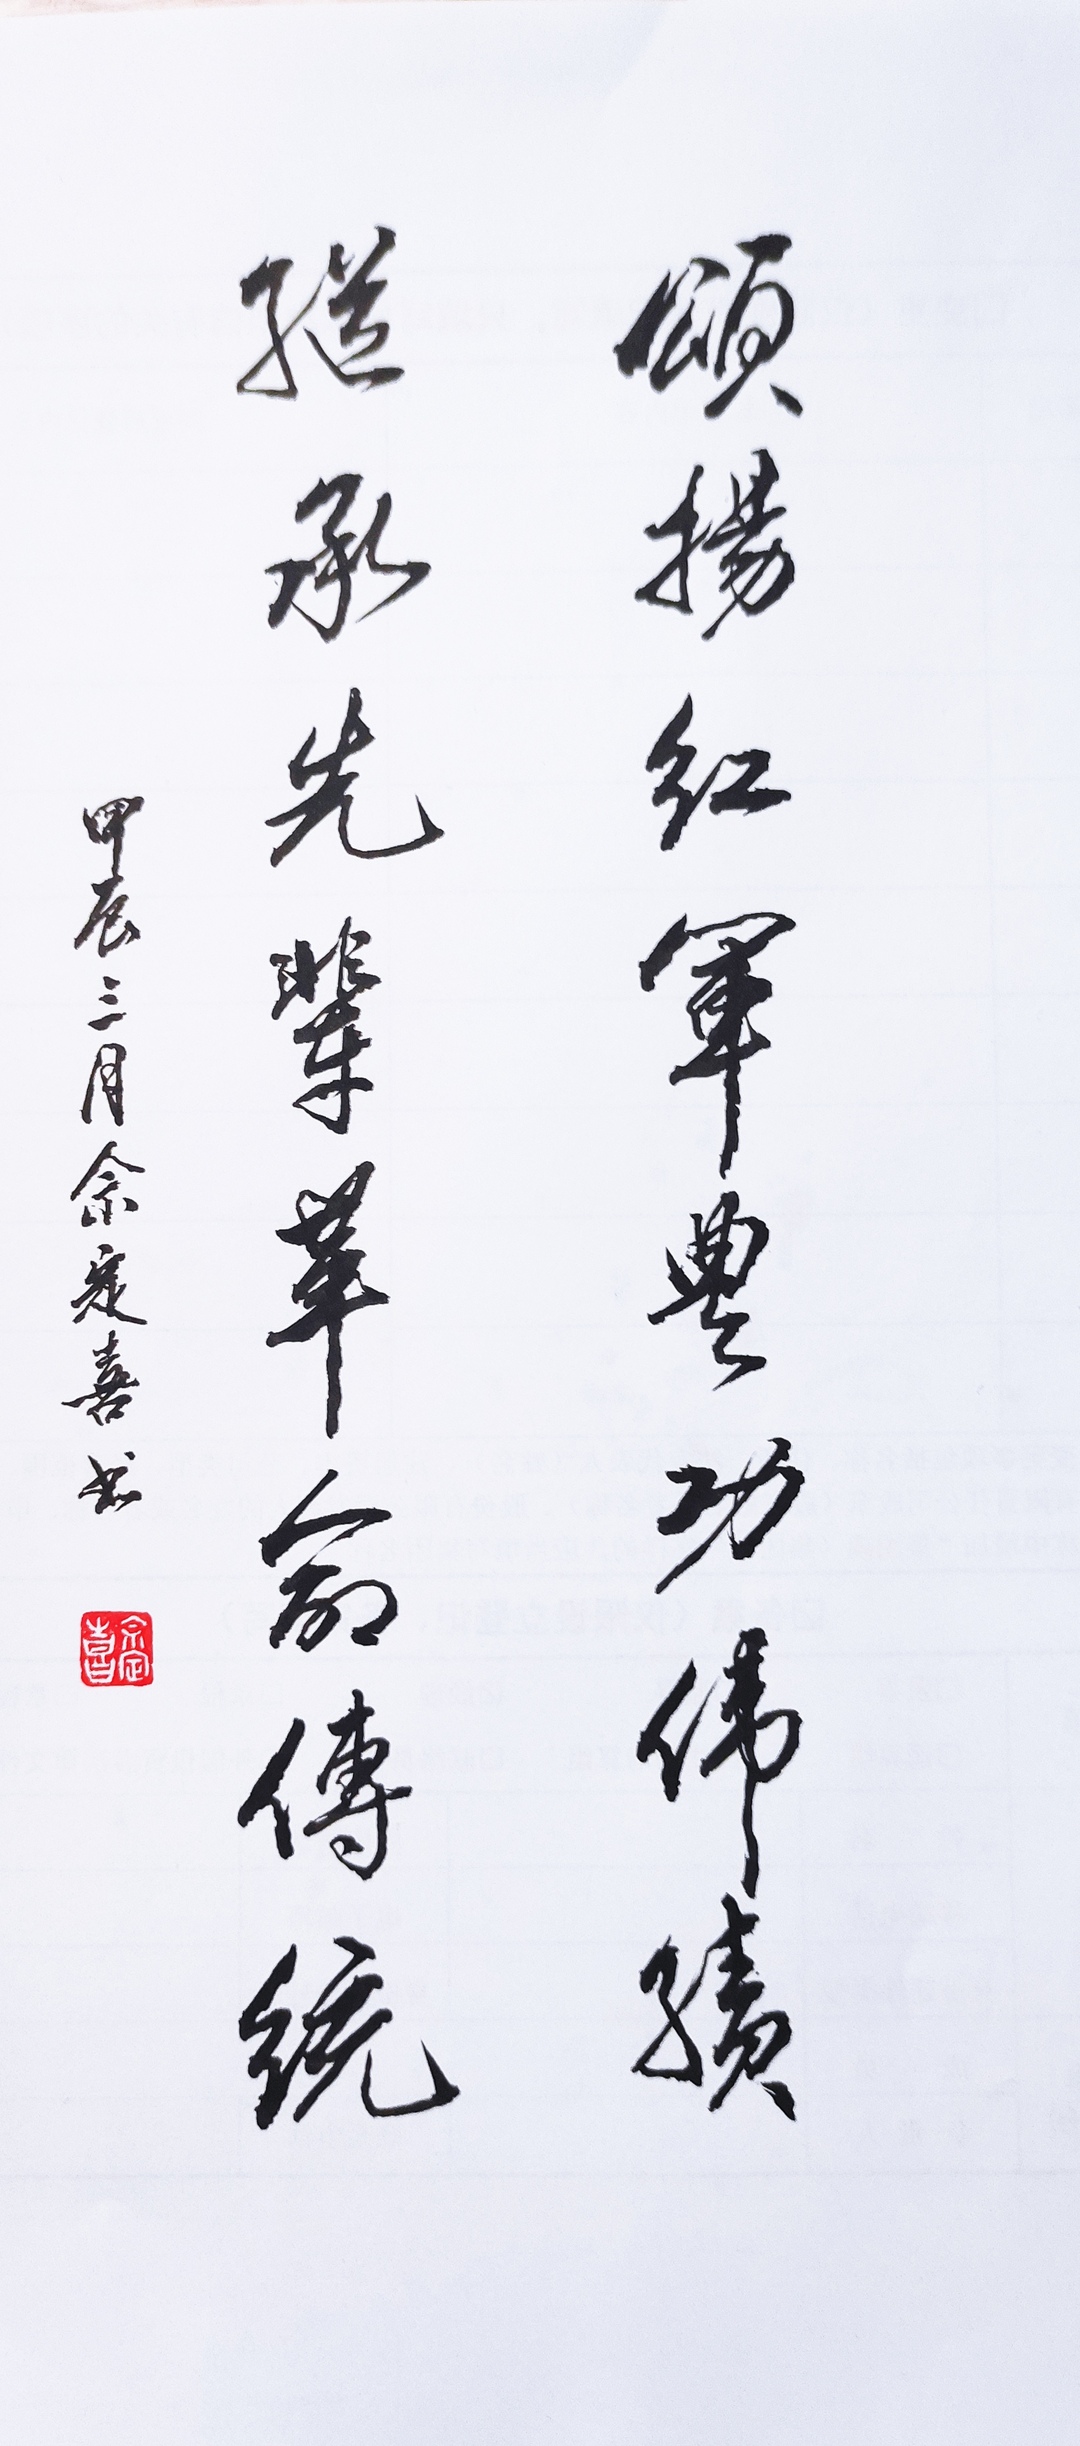 頌揚紅軍豊功偉績
继承先輩革命傳統
甲辰三月余定喜书
余定喜